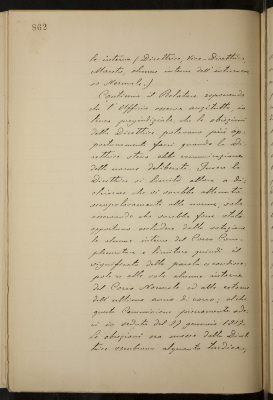 862
le interne (Direttrice, Vice-Direttrice,
Maestre, alunne interne dell'internato
o Normale.)
Continua il Relatore esponendo
che l'Ufficio osserva anzitutto, in
linea pregiudiziale che le obiezioni
della Direttrice potevano più op-
portunamente farsi quando la Di-
rettrice stessa ebbe comunicazione
delle norme deliberate. Invece la
Direttrice si limitò allora a di-
chiarare che si sarebbe attenuta
scrupolosamente alle norme, solo
osservando che sarebbe forse stato
opportuno escludere dalla votazione
le alunne interne del Corso Com-
plementare e limitare quindi il
significato della parola
alle sole alunne interne
del Corso Normale ed alle esterne
dell'ultimo anno di corso; al che
questa Commissione pienamente ade-
rì in seduta del gennaio 1913.
Le obiezioni ora mosse dalla Diret-
trice sembrano alquanto tardive,